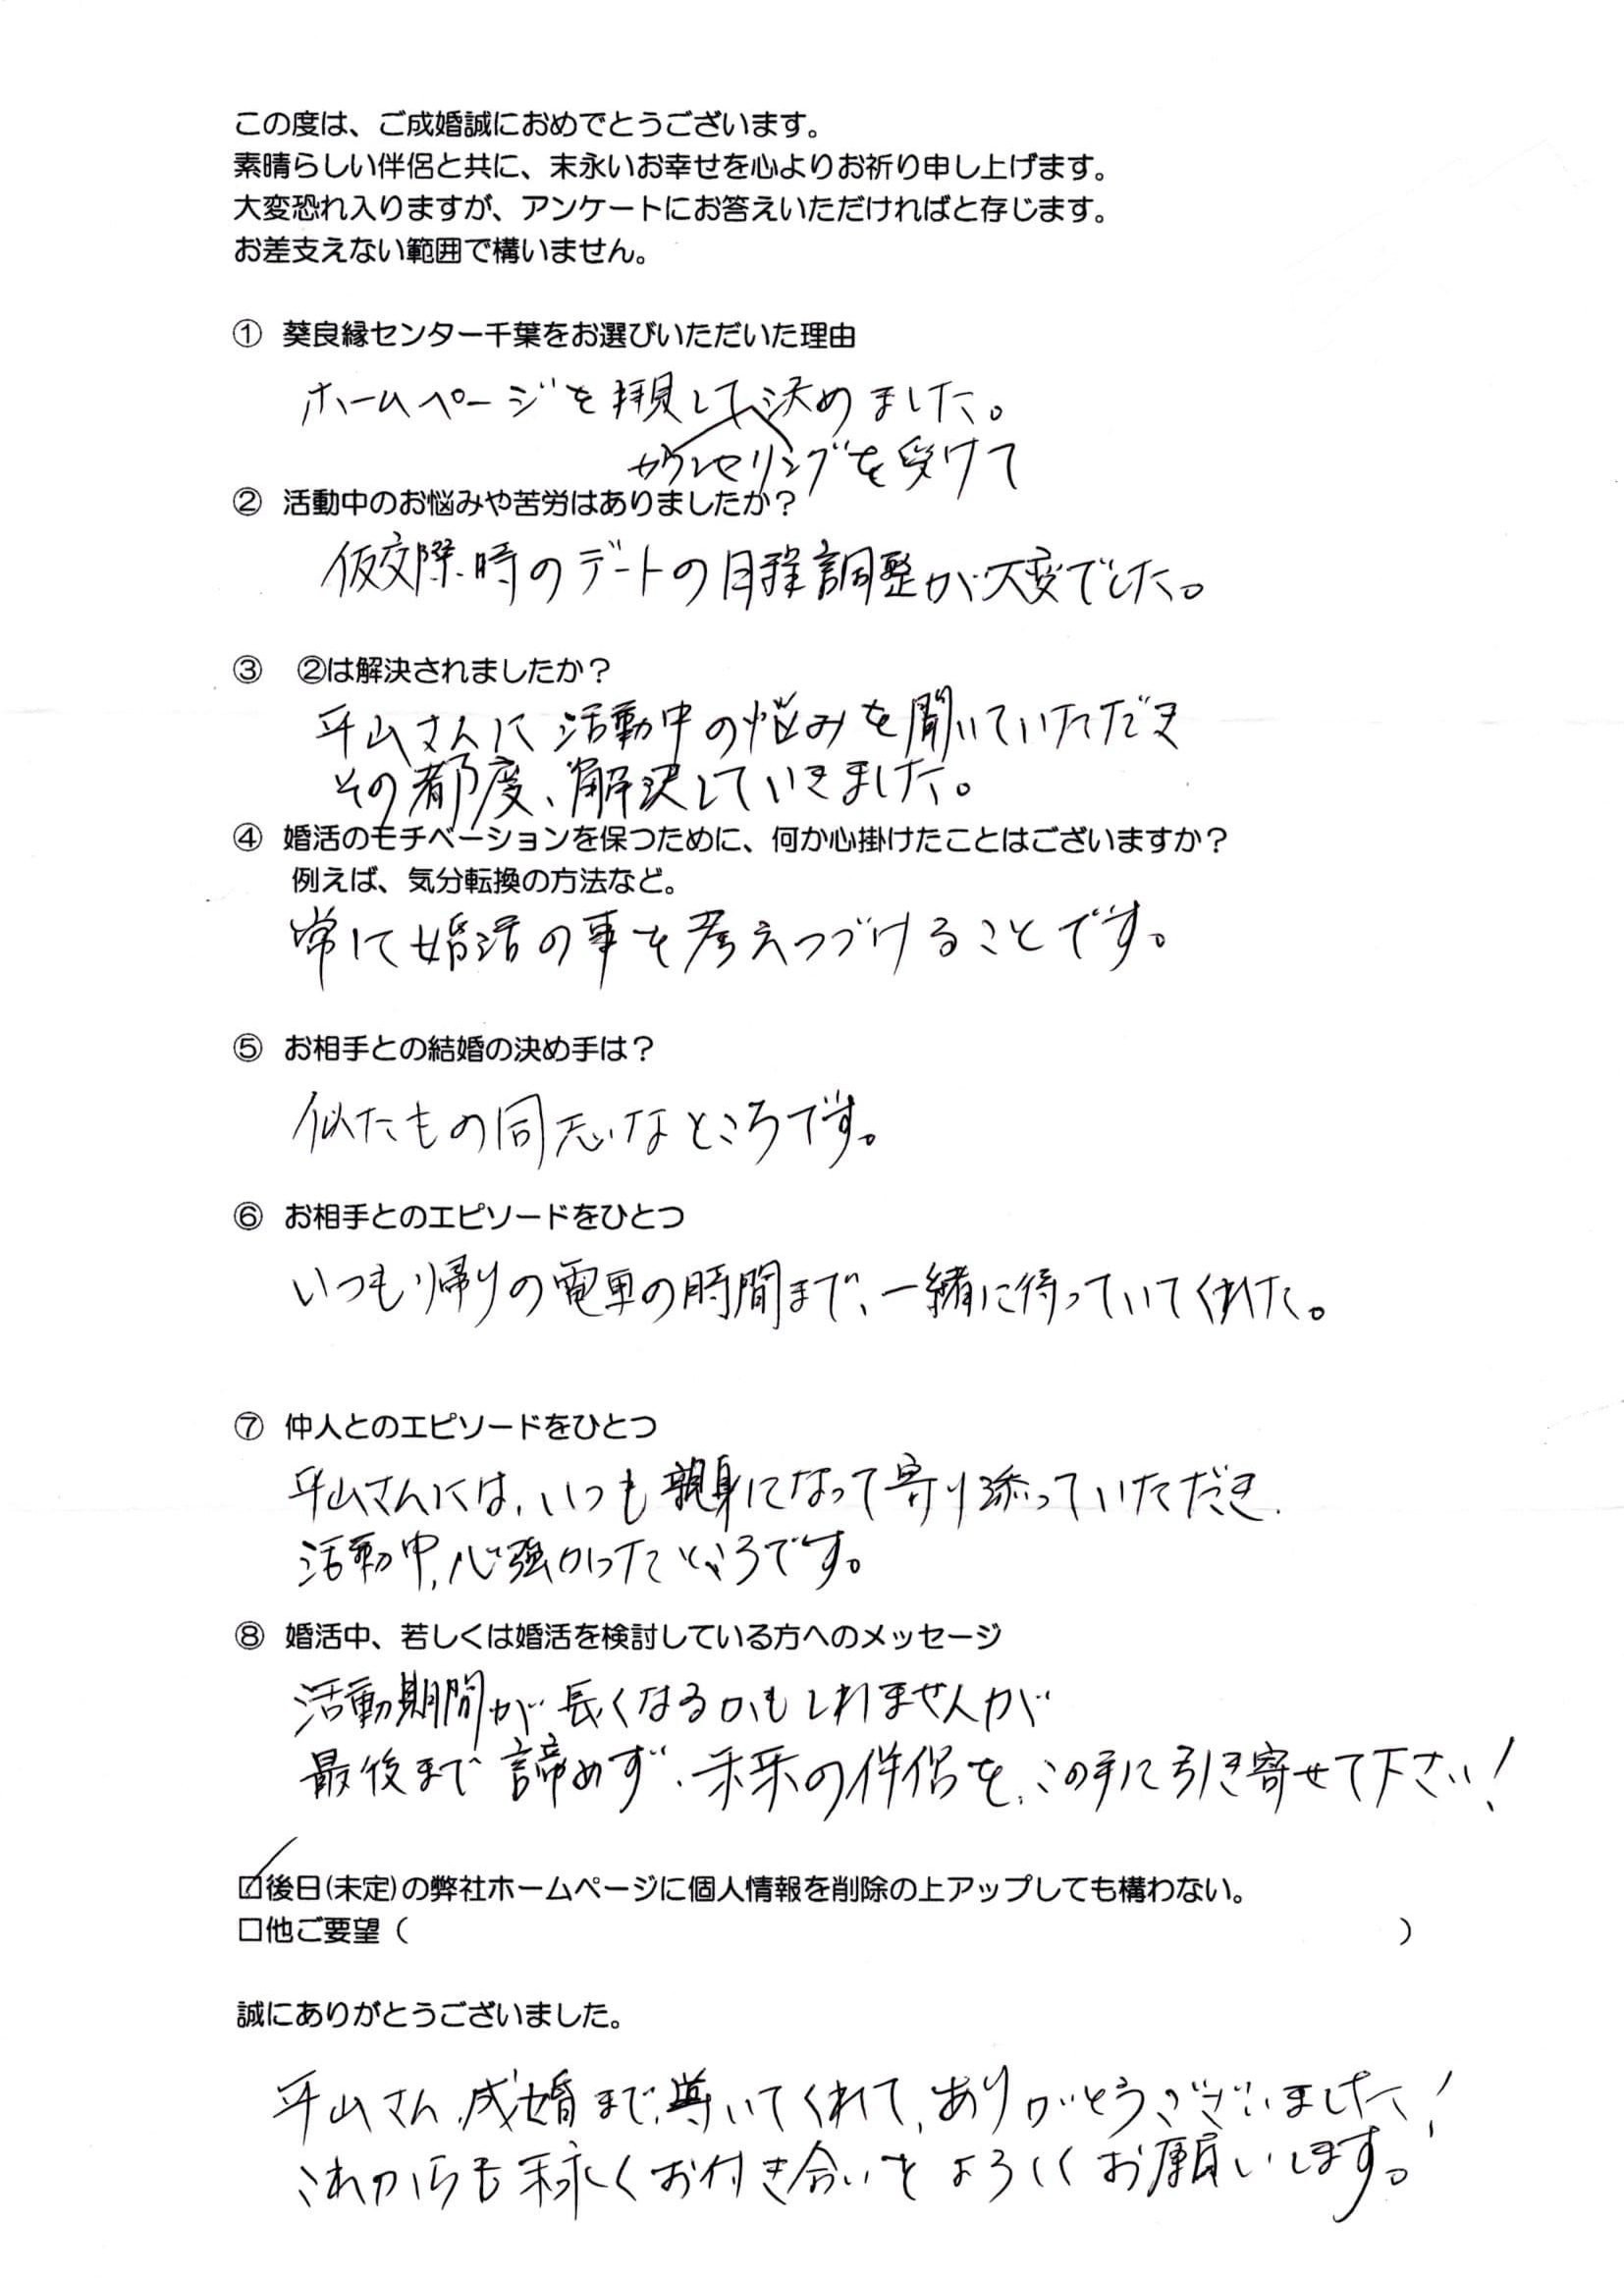 この度は、ご成婚誠におめでとうございます。
素晴らしい伴侶と共に、末永いお幸せを心よりお祈り申し上げます。
大変恐れ入りますが、アンケートにお答えいただければと存じます。
お差支えない範囲で構いません。
① 葵良縁センター千葉をお選びいただいた理由
ホームページを拝見して決めました。
カウンセリングを受けて
② 活動中のお悩みや苦労はありましたか？
仮交際時のデートの日程調整が大変でした。
③ ②は解決されましたか？
平山さんに活動中の悩みを聞いていただき
その都度、解決していきました。
④ 婚活のモチベーションを保つために、何か心掛けたことはございますか？
例えば、気分転換の方法など。
常に婚活の事を考えつづけることです。
⑤ お相手との結婚の決め手は？
似たもの同志なところです。
⑥ お相手とのエピソードをひとつ
いつも帰りの電車の時間まで、一緒に待っていてくれた。
⑦ 仲人とのエピソードをひとつ
平山さんには、いつも親身になって寄り添っていただき、
活動中、心強かったところです。
⑧ 婚活中、若しくは婚活を検討している方へのメッセージ
活動期間が長くなるかもしれませんが
最後まで諦めず、未来の伴侶を、この手に引き寄せて下さい！
☑後日(未定)の弊社ホームページに個人情報を削除の上アップしても構わない。
□他ご要望（　　　）
誠にありがとうございました。
平山さん、成婚まで、導いてくれて、ありがとうございました！
これからも末永くお付き合いをよろしくお願いします。